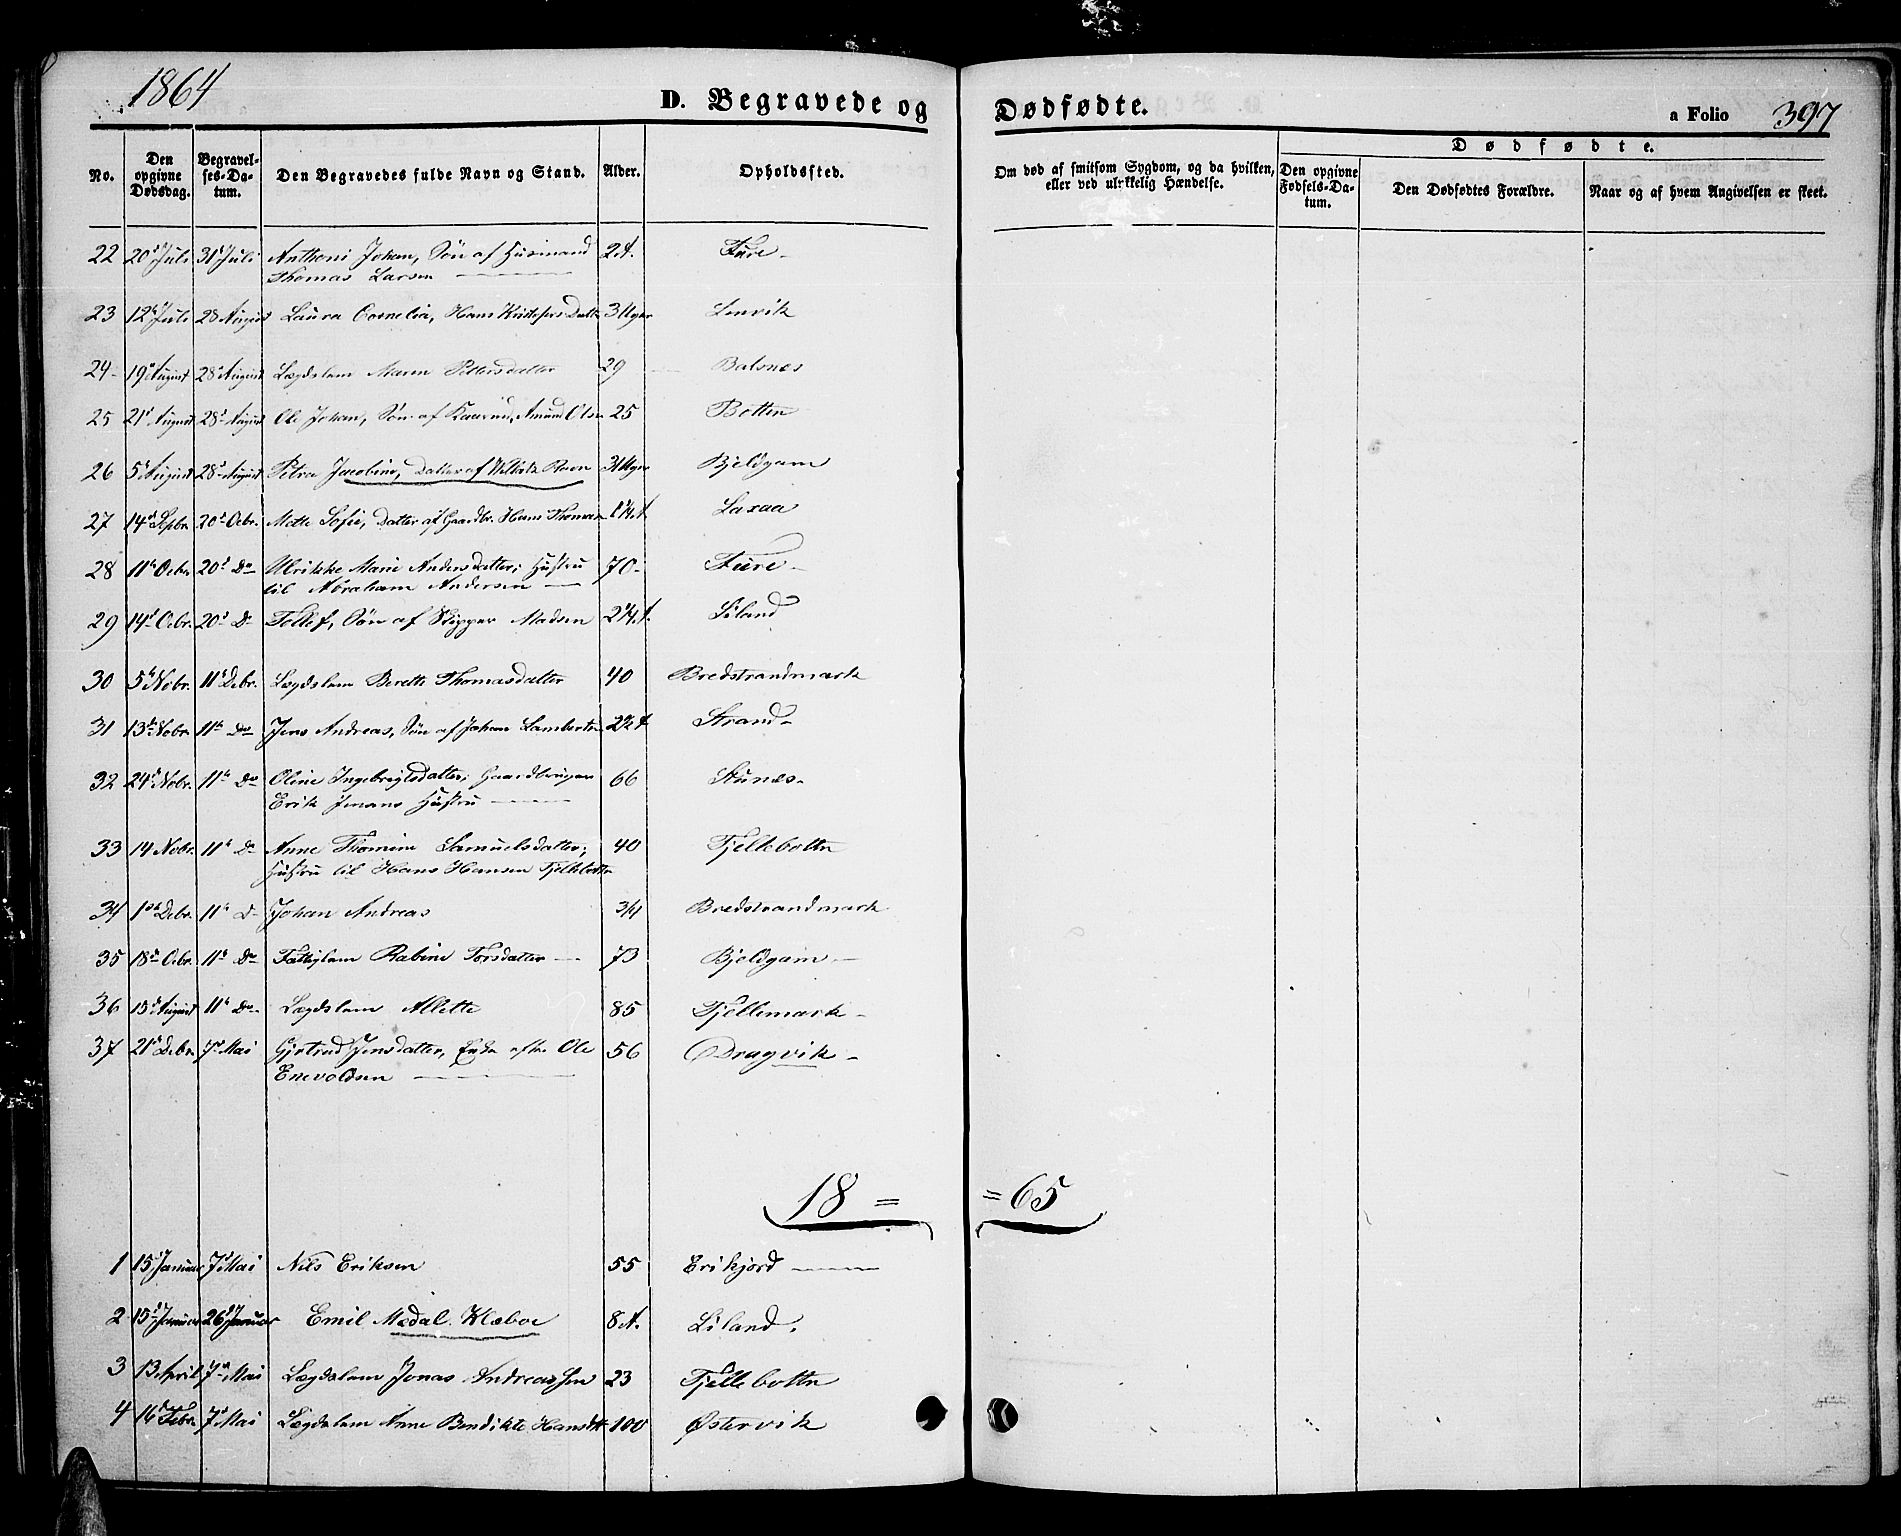 1864
D. Begravede og Dødfødte.
a Folio 397
No.
Den opgivne Dødsdag.
Begravelses-Datum.
Den Begravedes fulde Navn og Stand.
Alder.
Opholdssted.
Om død af smitsom Sygdom, og da hvilken, eller ved ulykkelig Hændelse.
Dødfødte.
Den opgivne Fødsels-Datum.
Den Dødfødtes Forældre.
Naar og af hvem Angivelsen er skeet.
22 20d Juli 31d Juli Anthoni Johan, Søn af Husmand 2 A.
Thomas Larsen
23 12d Juli 28 August Laura Cornelia, Hans Datter 3 Uger Lenvik
24 19d August 28d August Lægdslem Maren Pettersdatter 29 Balsnes
25 21d August 28d August Ole Johan, Søn af Amund Olsen 25 Botten
26 5d August 28d August Petra Jacobine, Datter af Ravn 3 Uger Bjeldgam
27 14d Sepbr. 20d Ocbr. Mette Sofie, Datter af Gaardbr. Hans Thomas Laxaa
28 11te Ocbr. 20d Do Ulrikke Marie Andersdatter, Hustru 70
til Abraham Andersen
29 14d Ocbr. 20d Do Tollef, Søn af Skipper Madsen Liland
30 5te Nobr. 11te Debr. Lægdslem Berette Thomasdatter 40 Bredstrandmark
31 13de Nobr. 11te Do Jens Andreas, Søn af Johan Lamberts 2½ A Strand
32 24d Nobr. 11te Do Oline Ingebrigtsdatter, Gaardbruger 66
Erik Jensens Hustru
33 14 Nobr. 11te Do Anne Thomine Samuelsdatter, 40 Fjelkbotn
Hustru til Hans Hansen Fjelkbotn
34 1ste Debr. 11te Do Johan Andreas 3/4 Bredstrandmark
35 18de Ocbr. 11te Do Fattiglem Rabine Torsdatter 73 Bjeldgam
36 15d August 11te Do Lægdslem Allette 85 Fjellemark
37 21d Debr. 7de Mai Gjertrud Jensdatter, Enke efter Ole 56 Dragvik
Enevoldsen
18 = = 65
1 15d Januar 7d Mai Nils Eriksen 55 Erikjord
2 15d Januar 26d Januar Emil Medal Klæboe 8 A. Liland.
3 13 April 7de Mai Lægdslem Jonas Andreassen 23 Fjellebotn
4 16d Febr. 7d Mai Lægdslem Anne Bendikte Hansdtr 100 Østervik